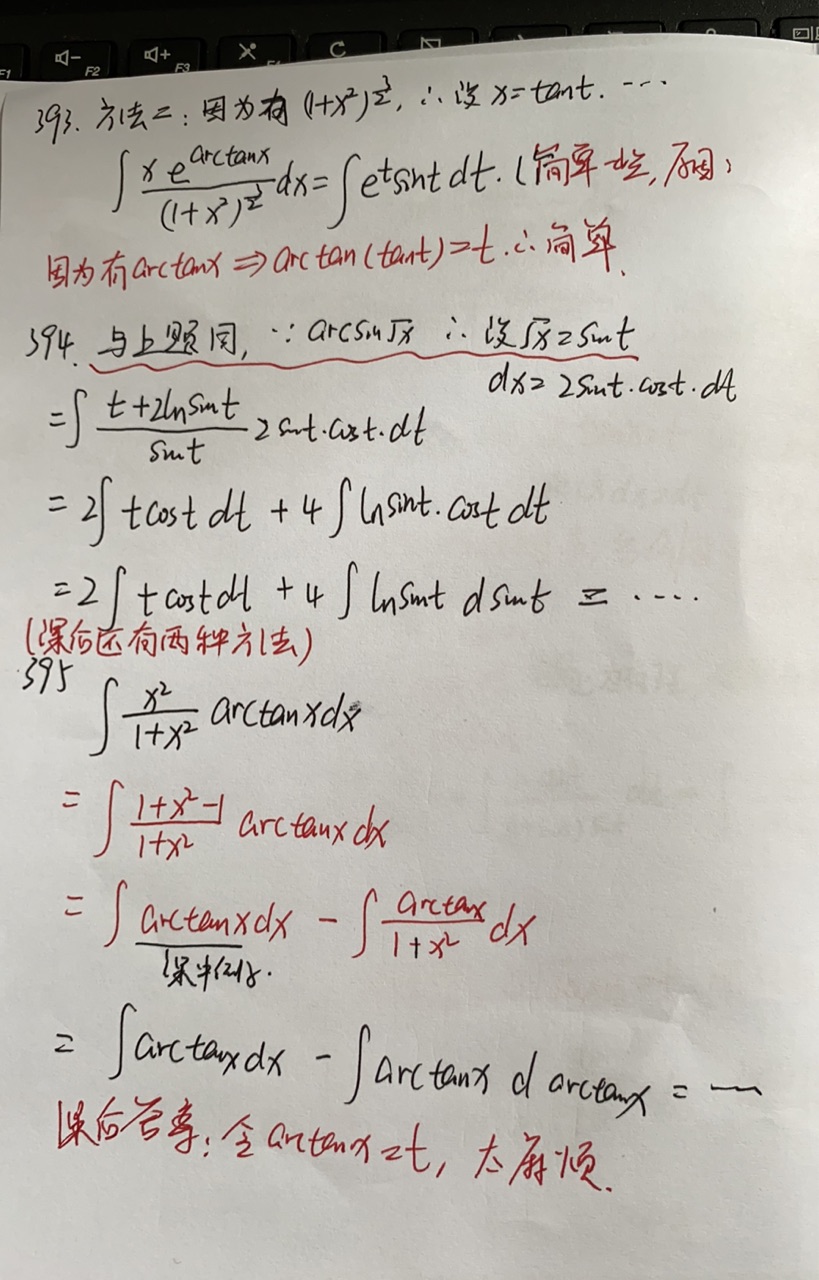 F1 F2 F3 X C
393. 方法二: 因为有 (1+x²)^{3/2}, ∴设 x=tant. ...
∫ \frac{x e^{arctanx}}{(1+x²)^{3/2}} dx = ∫e^t sint dt. (简单一些, 原因:
因为有arctanx ⇒ arctan(tant)=t. ∴简单.
394. 与上题同, ∵ arcsin√x ∴ 设√x=sint
dx= 2sint·cost·dt
=∫ \frac{t+2lnsint}{sint} 2sint·cost·dt
= 2∫ tcost dt + 4∫ lnsint·cost dt
=2∫ tcostdt + 4∫ lnsint dsint = ....
(课后还有两种方法)
395
∫ \frac{x²}{1+x²} arctanxdx
= ∫ \frac{1+x²-1}{1+x²} arctanx dx
= ∫ arctanxdx - ∫ \frac{arctanx}{1+x²} dx
= ∫arctanxdx - ∫arctanx d arctanx = ...
课后答案: 令arctanx=t, 太麻烦.